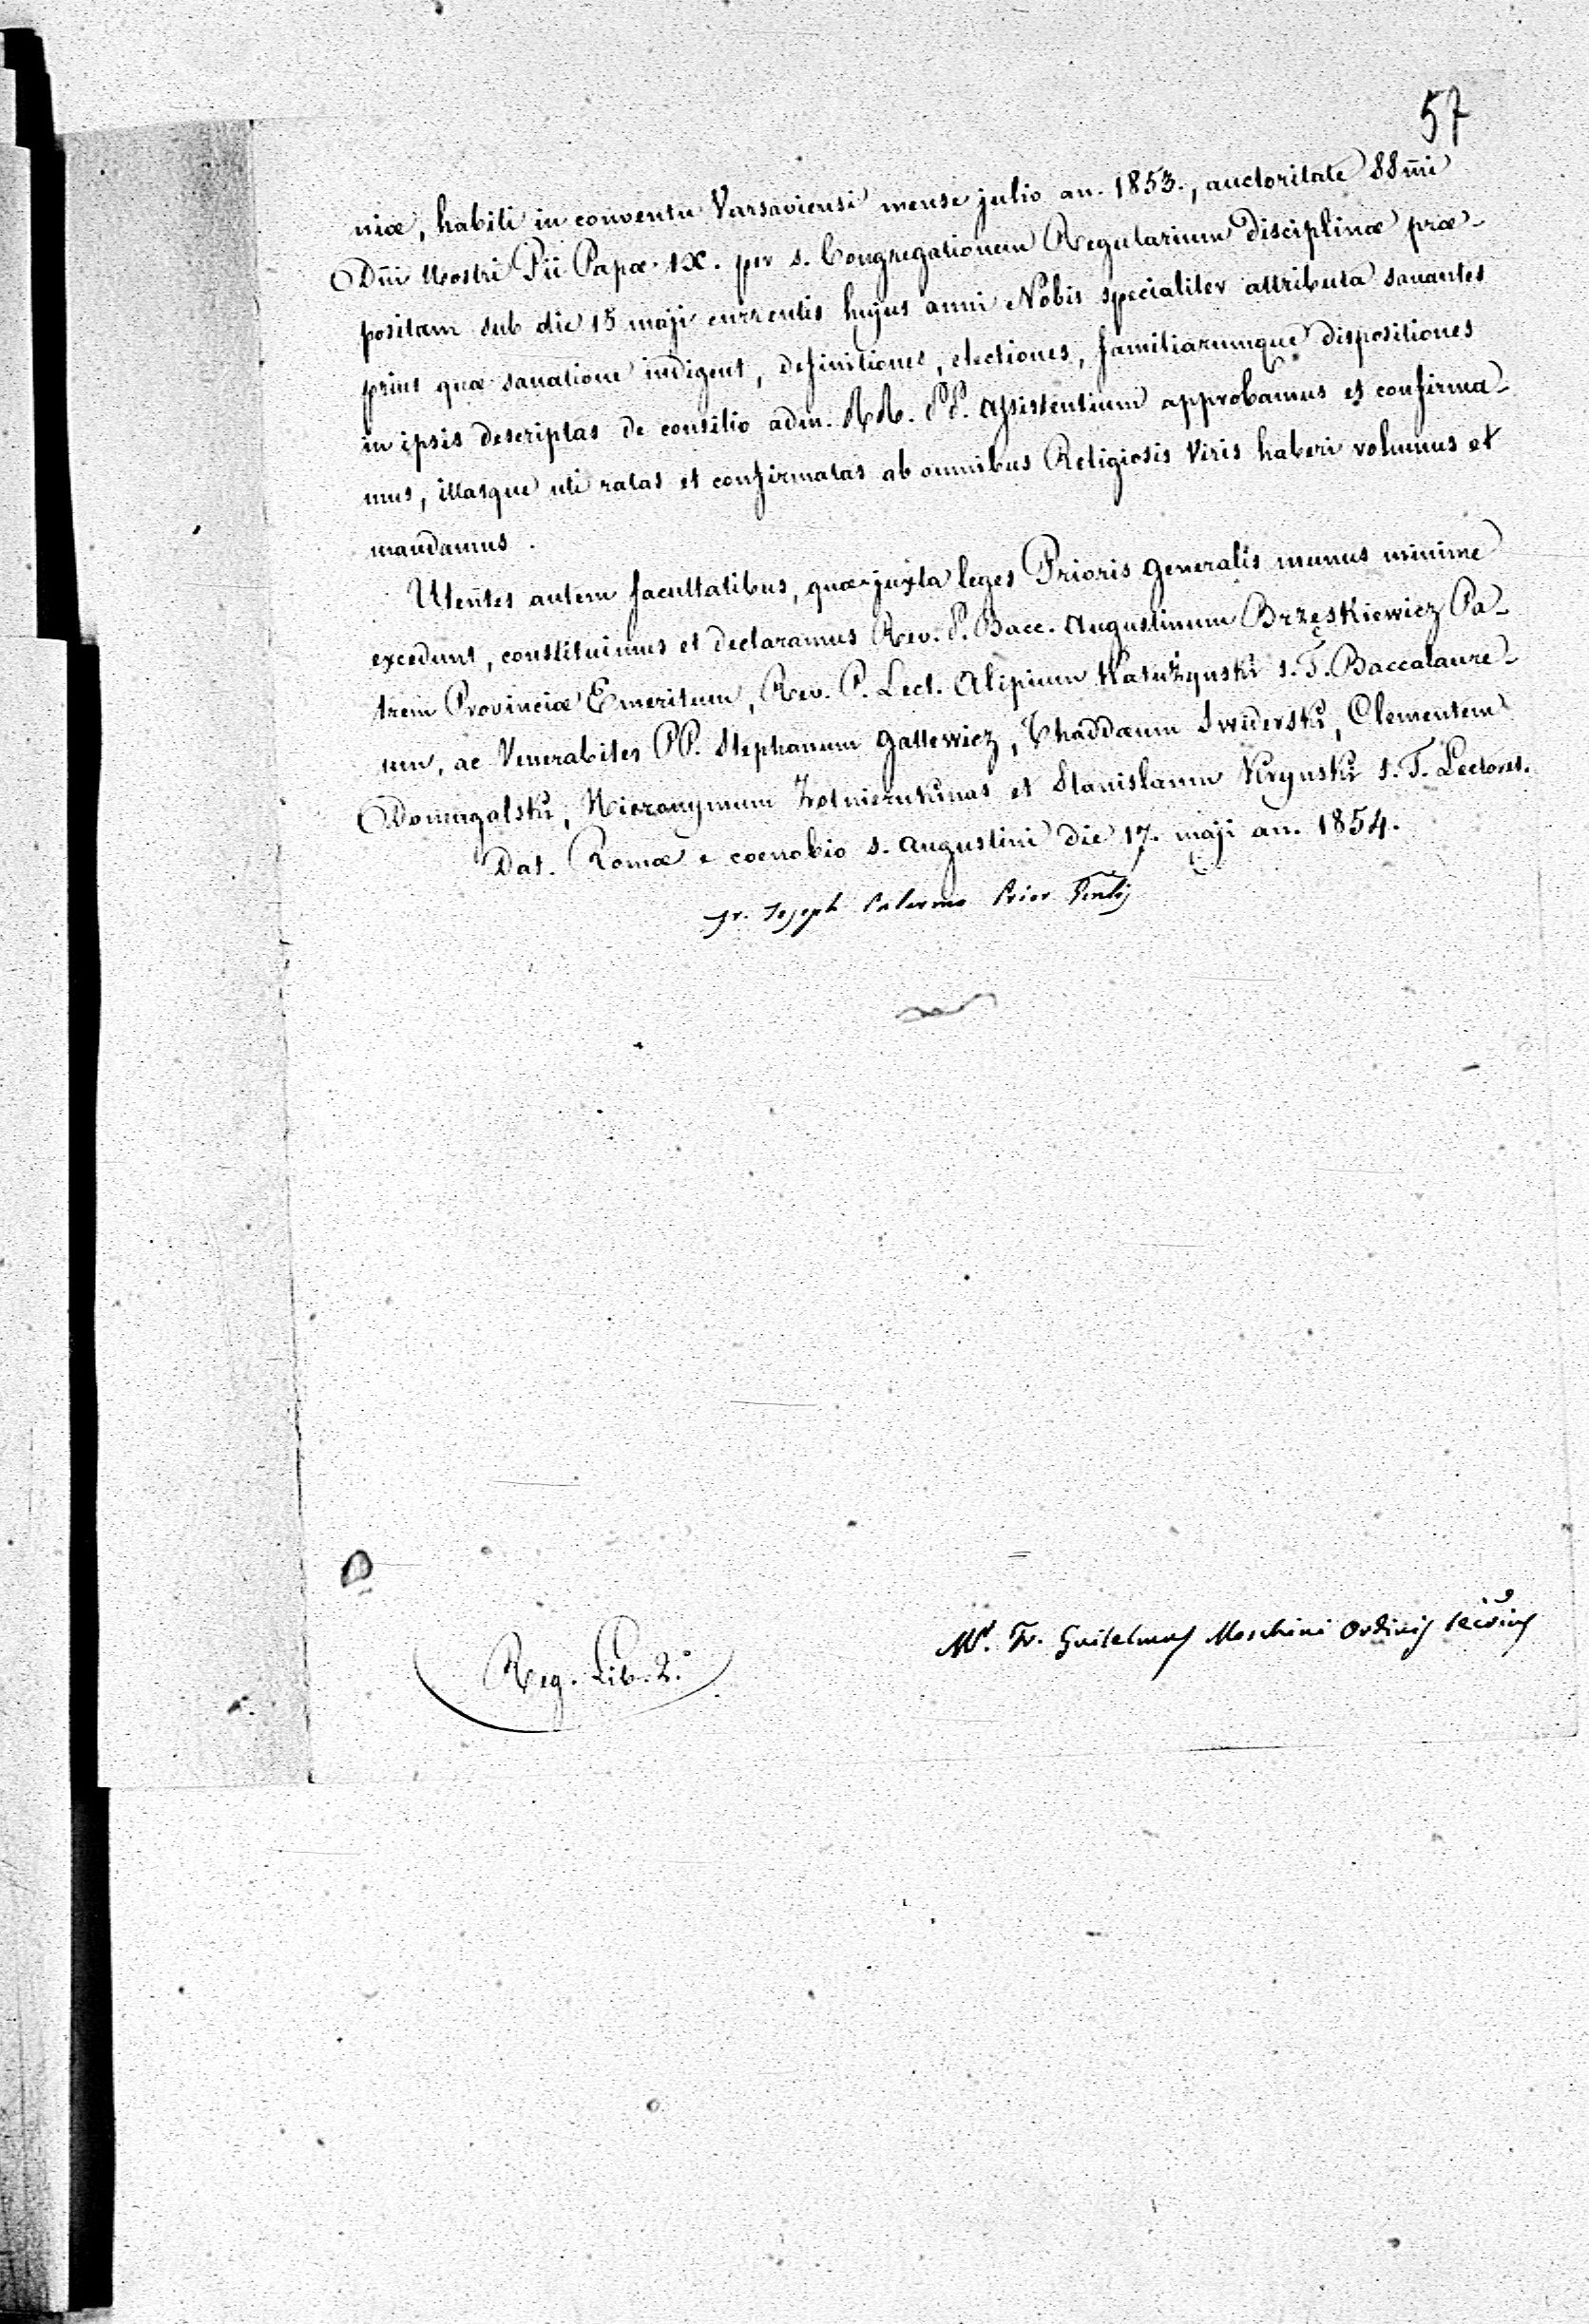 57
niæ, habiti in conventu Varsaviensi mense julio an. 1853., auctoritate SSm̄i
Dn̄i Nostri Pii Papæ IX. per s. Congregationem Regularium Disciplinæ præ-
positam sub die 15 maji currentis hujus anni Nobis specialiter attributa sanantes
prius quæ sanatione indigent, definitiones, electiones, familiarumque dispositiones
in ipsis descriptas de consilio adm. RR. PP. Assistentium approbamus et confirma-
mus, illasque uti ratas et confirmatas ab omnibus Religiosis Viris haberi volumus et
mandamus.
Utentes autem facultatibus, quæ juxta leges Prioris Generalis munus minime
excedunt, constituimus et declaramus Rev. P. Bacc. Augustinum Brzęskiewicz Pa-
trem Provinciæ Emeritum, Rev. P. Lect. Alipium Katużynski s. T. Baccalaure-
um, ac Venerabiles PP. Stephanum Gallewicz, Thaddæum Swiderski, Clementem
Domagalski, Hieronymum Zotnierukinas et Stanislaum Krynski s. T. Lectores.
Dat. Romæ e coenobio s. Augustini die 17. maji an. 1854.
Fr. Joseph Palermo Prior Gen̄lis
Mr. Fr. Guilelmus Moschini Ordinis
Reg. Lib. 2.º